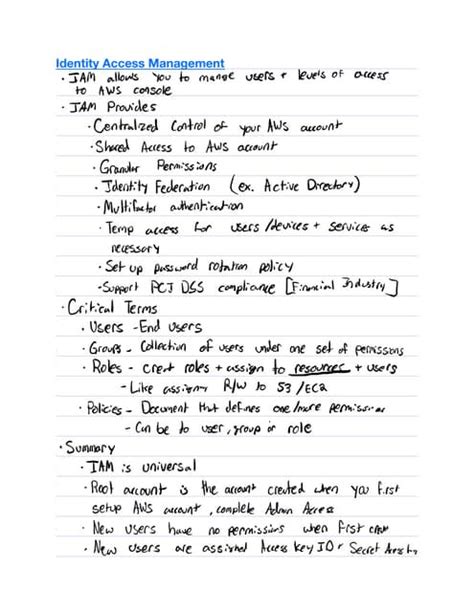 Identity Access Management
· IAM allows you to mange users + levels of access
to AWS console
· IAM Provides
· Centralized Control of your AWS account
· Shared Access to AWS account
· Granular Permissions
· Identity Federation (ex. Active Directory)
· Multifactor authentication
· Temp access for users/devices + services as
necessary
· Set up password rotation policy
· Support PCI DSS compliance [Financial Industry]
· Critical Terms
· Users - End users
· Groups - Collection of users under one set of permissions
· Roles - create roles + assign to resources + users
- Like assigning R/W to S3/EC2
· Policies - Document that defines one/more permissions
- Can be to user, group or role
· Summary
· IAM is universal
· Root account is the account created when you first
setup AWS account, complete Admin Access
· New users have no permissions when first
· New users are assigned Access Key ID + Secret